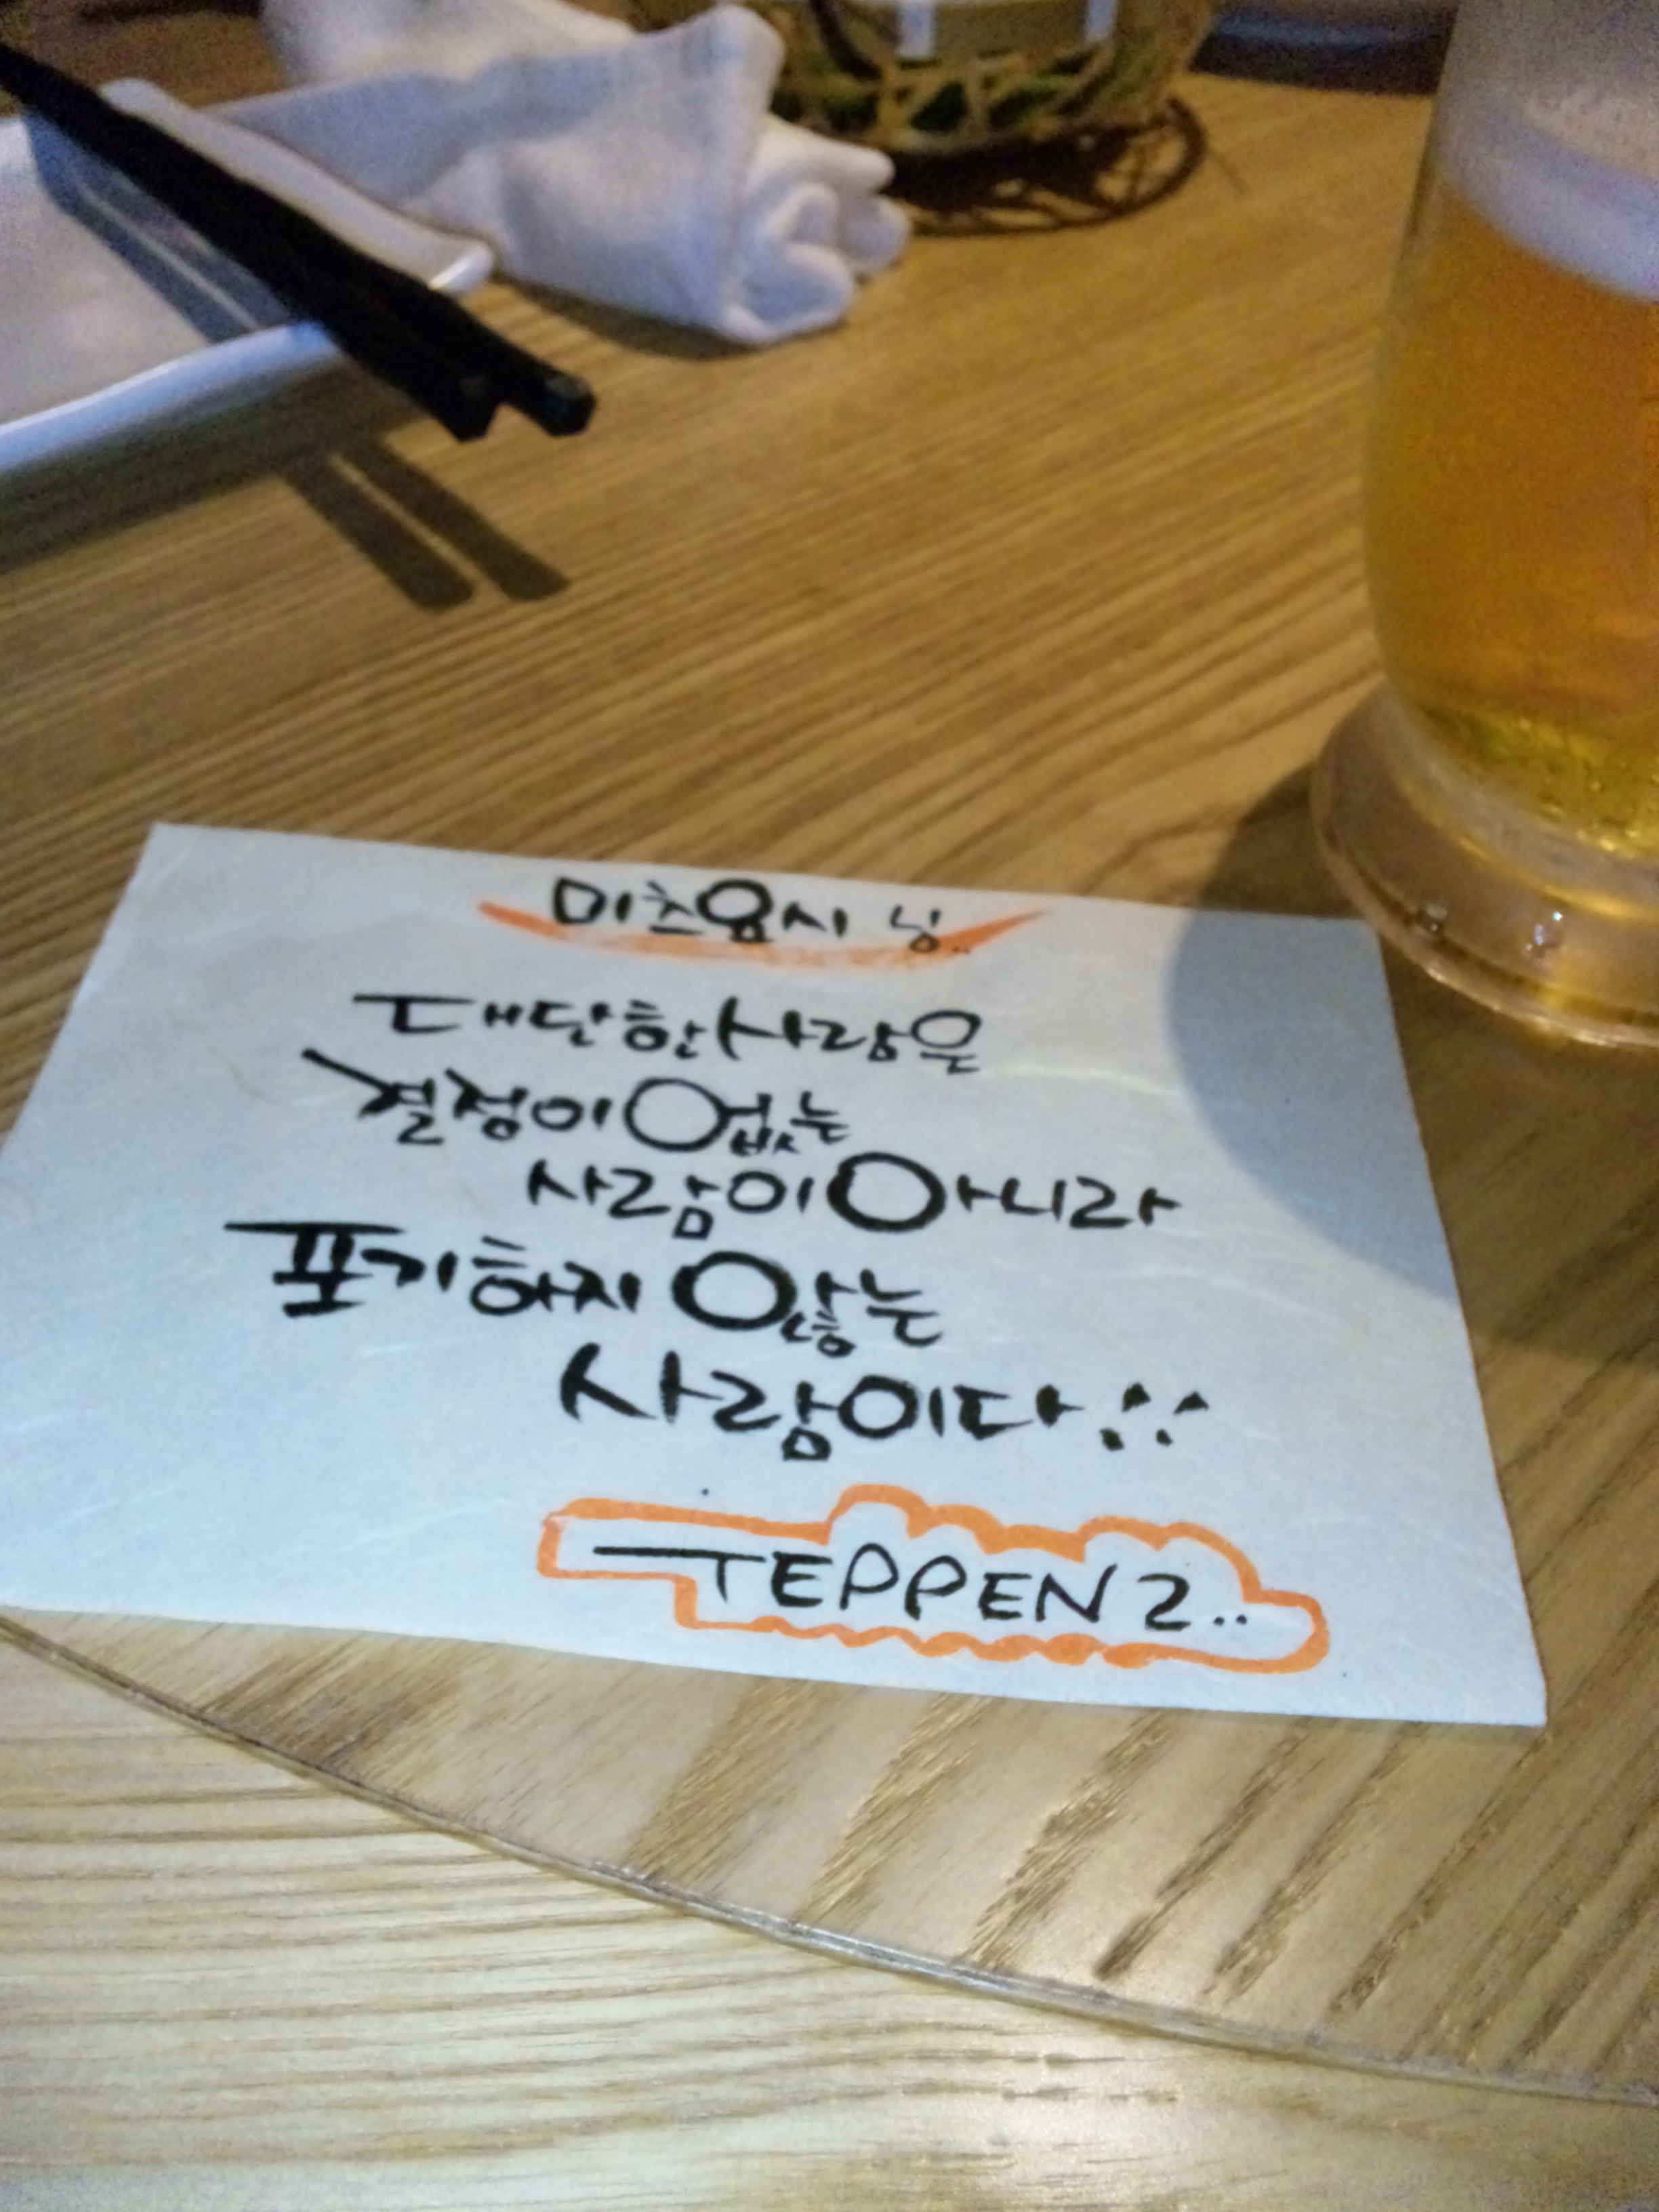 미츠요시 님..
대단한사람은
결정이없는
사람이아니라
포기하지않는
사람이다!!
TEPPEN 2..